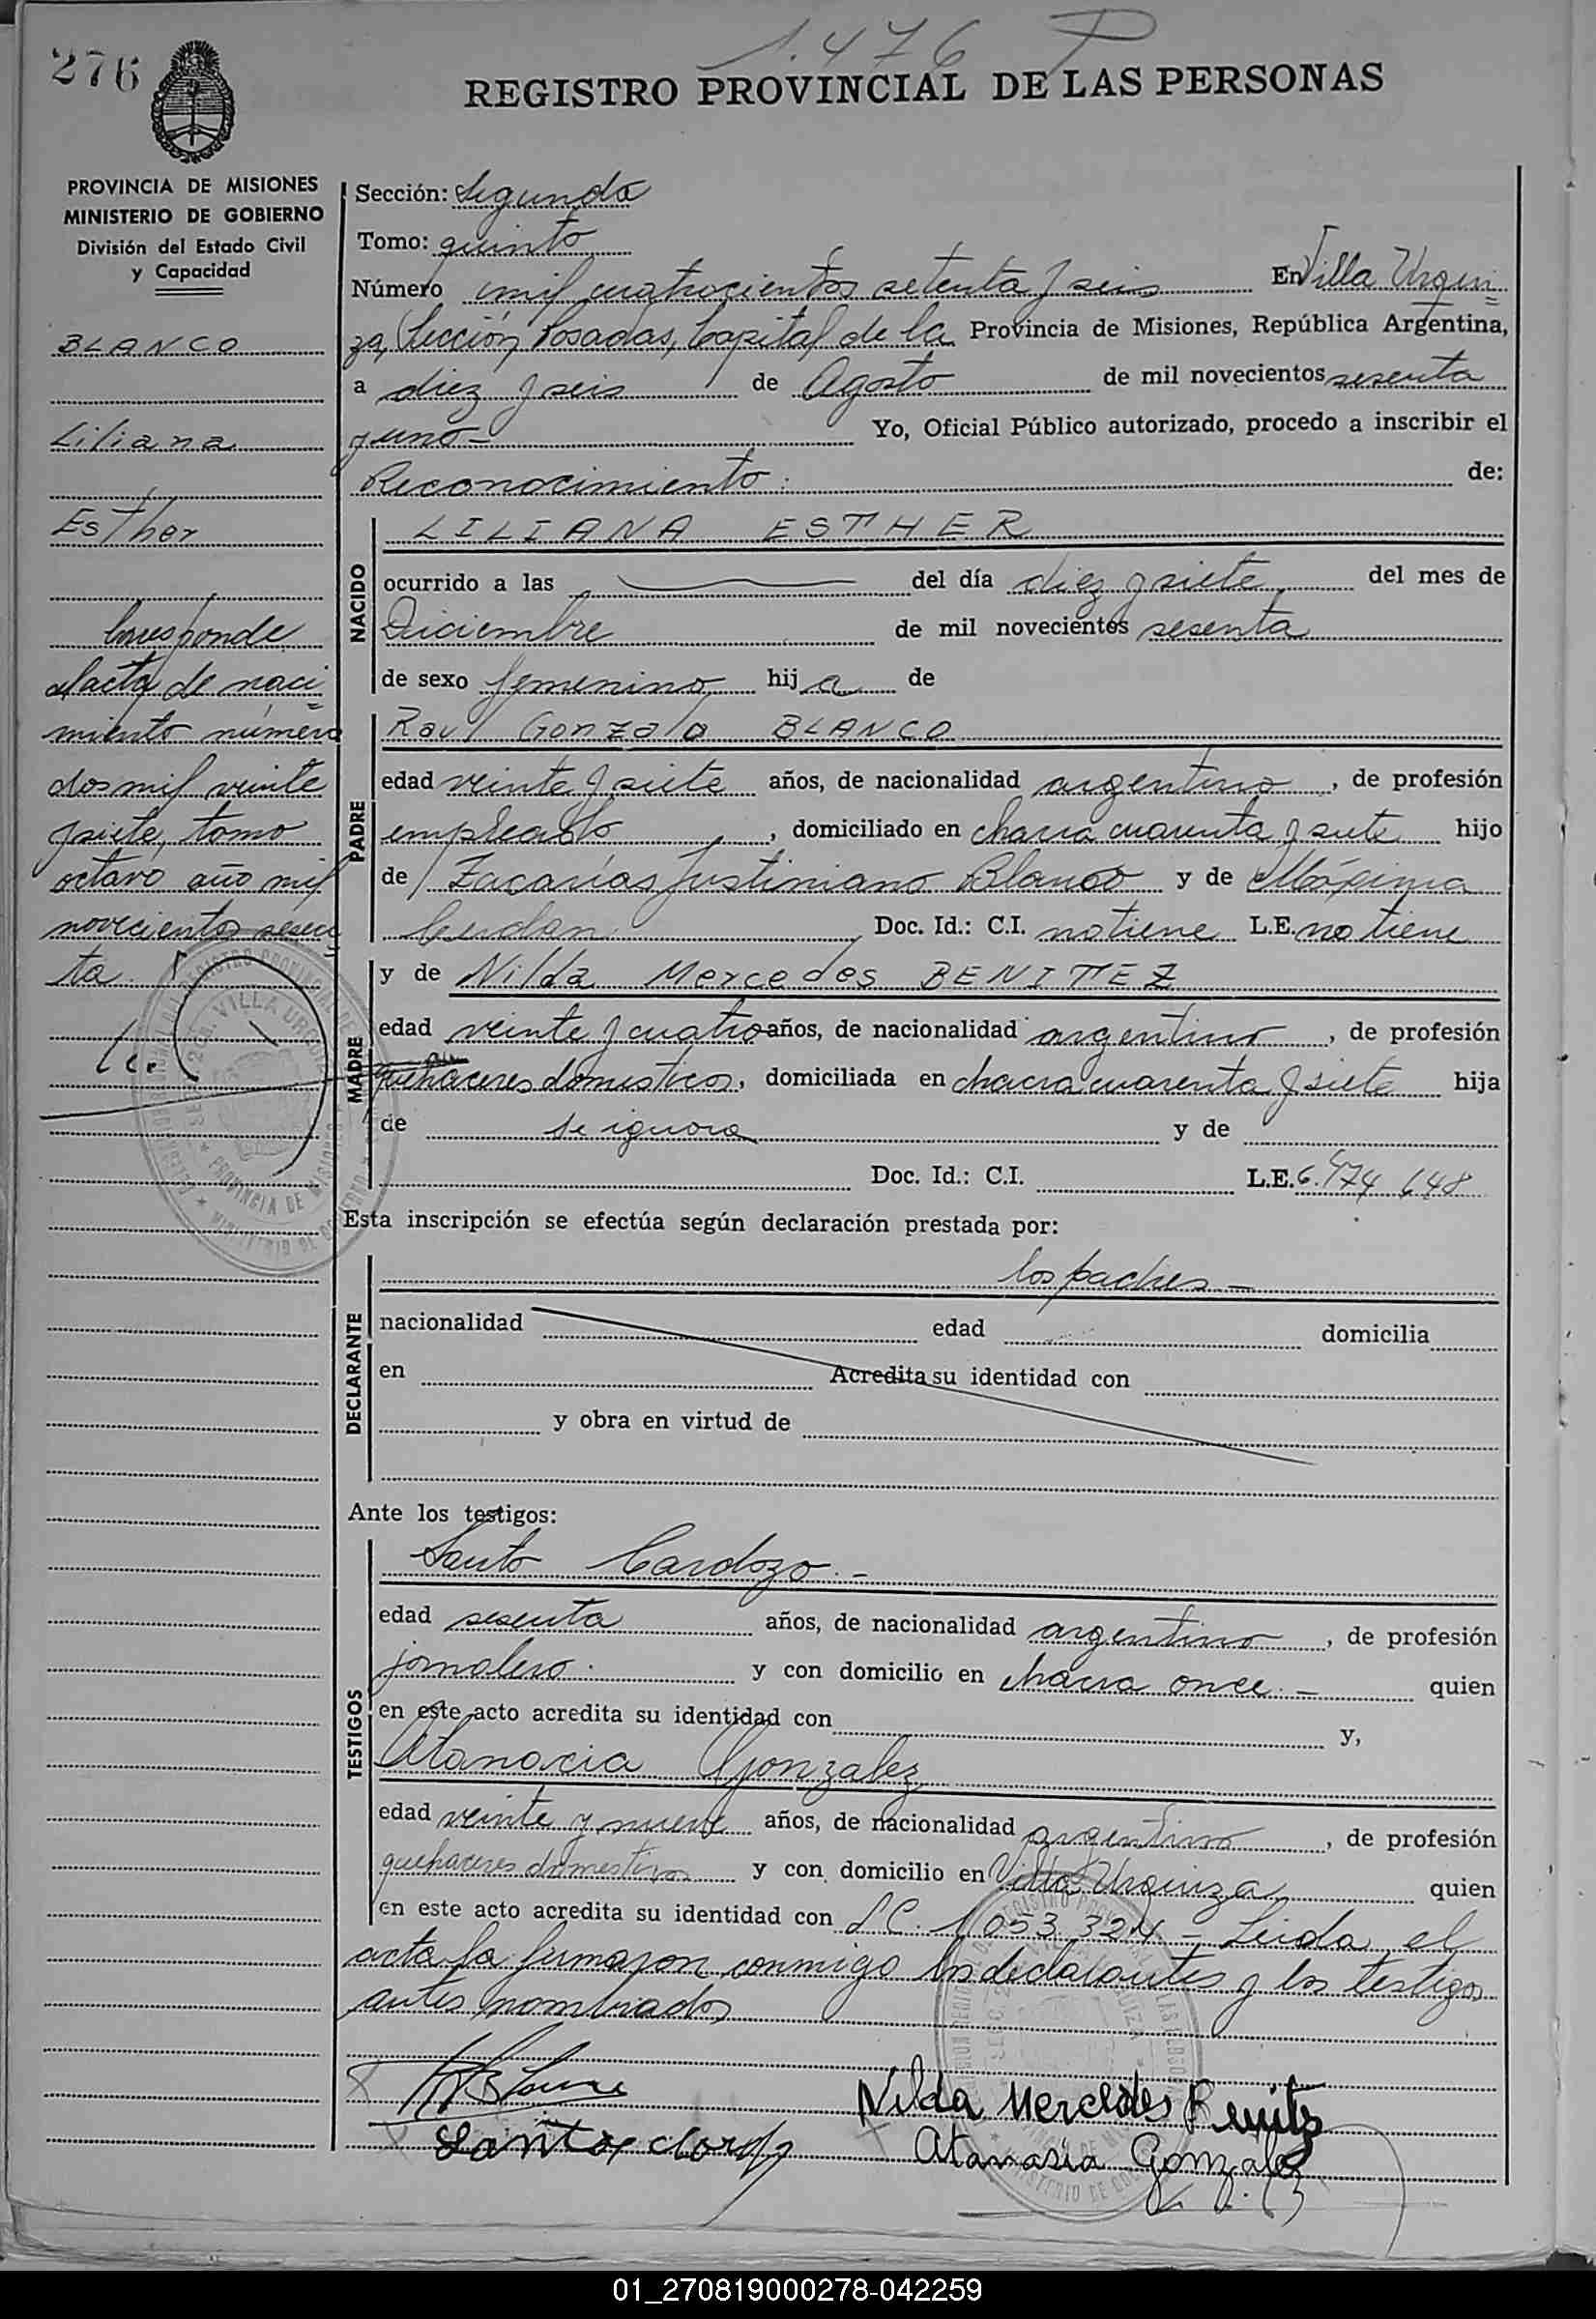 276
1.476 P
REGISTRO PROVINCIAL DE LAS PERSONAS
PROVINCIA DE MISIONES
MINISTERIO DE GOBIERNO
División del Estado Civil
y Capacidad
BLANCO
Liliana
Esther
Corresponde
al acta de naci=
miento número
dos mil veinte
y siete, tomo
octavo año mil
novecientos sesen=
ta.
Sección: Segunda
Tomo: quinto
Número mil cuatrocientos setenta y seis En Villa Urqui=
za, Sección Posadas, Capital de la Provincia de Misiones, República Argentina,
a diez y seis de Agosto de mil novecientos sesenta
y uno- Yo, Oficial Público autorizado, procedo a inscribir el
Reconocimiento de:
NACIDO
LILIANA ESTHER
ocurrido a las del día diez y siete del mes de
Diciembre de mil novecientos sesenta
de sexo femenino hija de
PADRE
Raul Gonzalo BLANCO
edad veinte y siete años, de nacionalidad argentino, de profesión
empleado, domiciliado en chacra cuarenta y siete hijo
de Zacarías Justiniano Blanco y de Máxima
Doc. Id.: C.I. no tiene L.E. no tiene
MADRE
y de Nilda Mercedes BENITEZ
edad veinte y cuatro años, de nacionalidad argentino, de profesión
quehaceres domesticos, domiciliada en chacra cuarenta y siete hija
de se ignora y de
Doc. Id.: C.I. L.E. 6.474 648
Esta inscripción se efectúa según declaración prestada por:
DECLARANTE
los padres -
nacionalidad edad domicilia
en Acredita su identidad con
y obra en virtud de
Ante los testigos:
TESTIGOS
Santo Cardozo.-
edad sesenta años, de nacionalidad argentino, de profesión
jornalero. y con domicilio en chacra once.- quien
en este acto acredita su identidad con y,
Atanacia Gonzalez
edad veinte y nueve años, de nacionalidad argentino, de profesión
quehaceres domesticos y con domicilio en Villa Urquiza quien
en este acto acredita su identidad con L.C. 1.053.324.- Leida el
acta la firmaron conmigo los declarantes y los testigos
antes nombrados
Nilda Mercedes Benitez
Atanasia Gonzalez
01_270819000278-042259